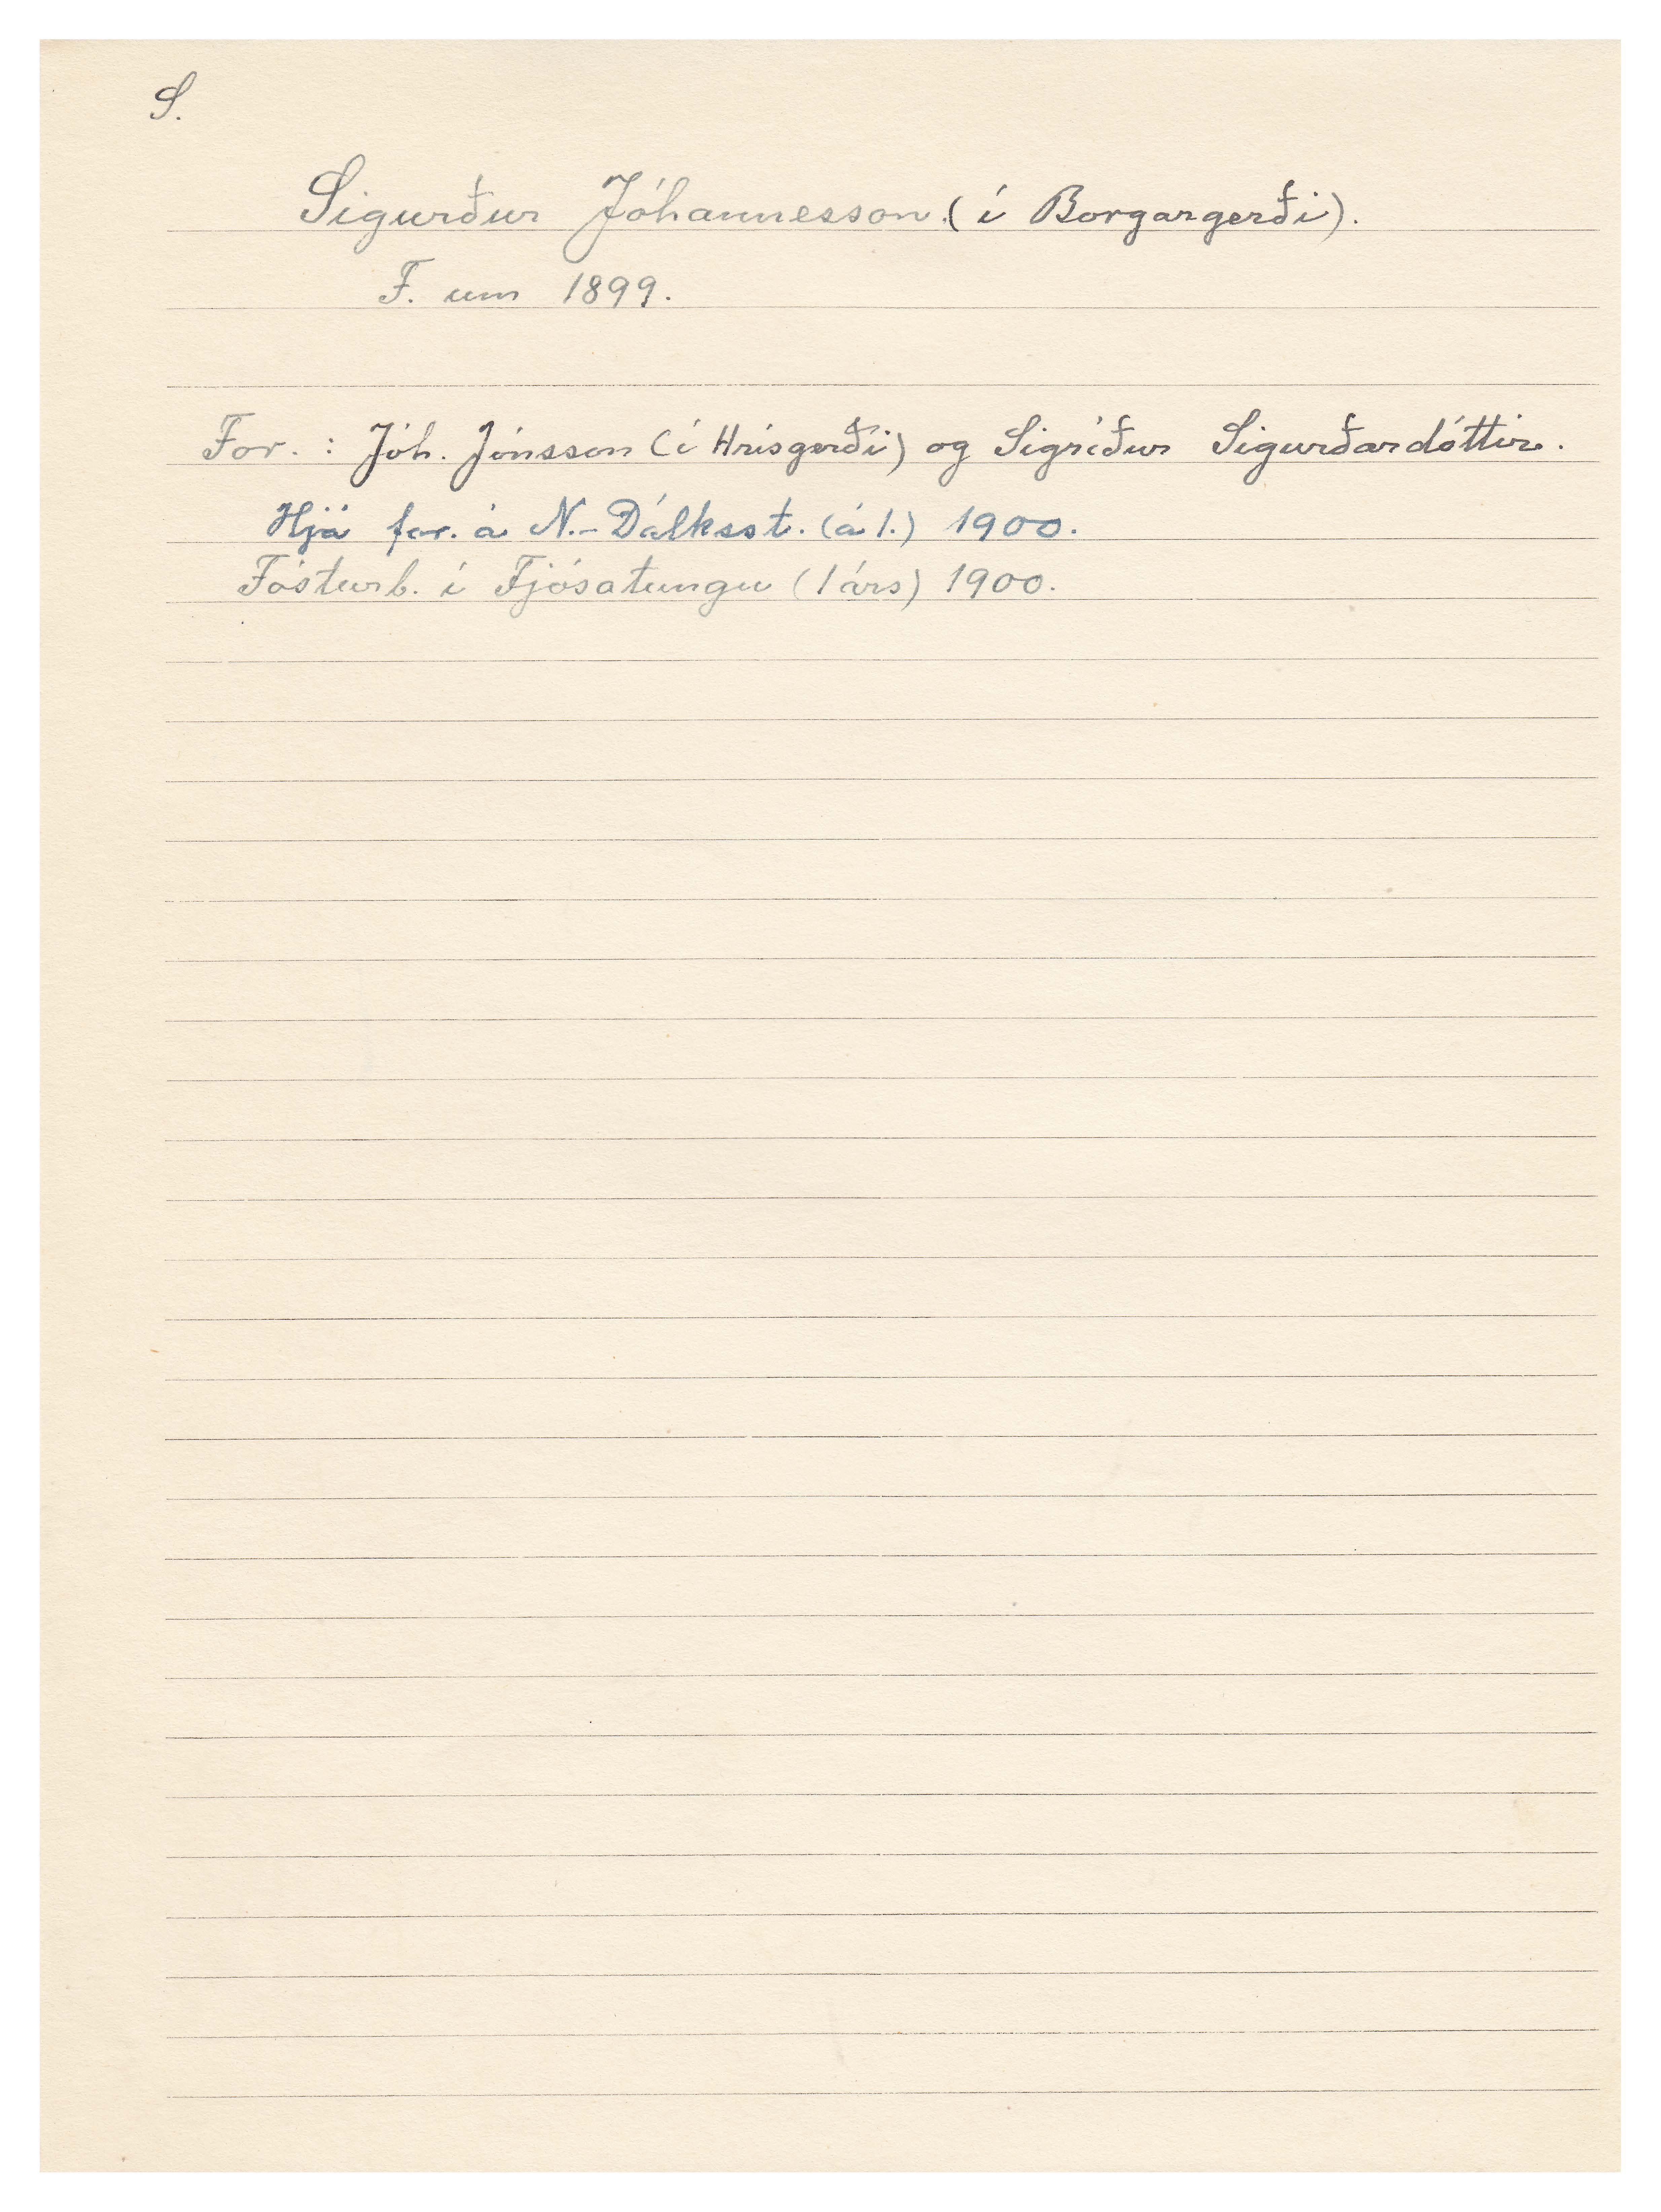 S.
Sigurður Jóhannesson. (í Borgargerði).
F. um 1899.
For. : Jóh. Jónsson (í Hrísgerði) og Sigríður Sigurðardóttir.
Hjá for. á N.-Dálksst. (á 1.) 1900.
Fósturb. í Fjósatungu (1 árs) 1900.